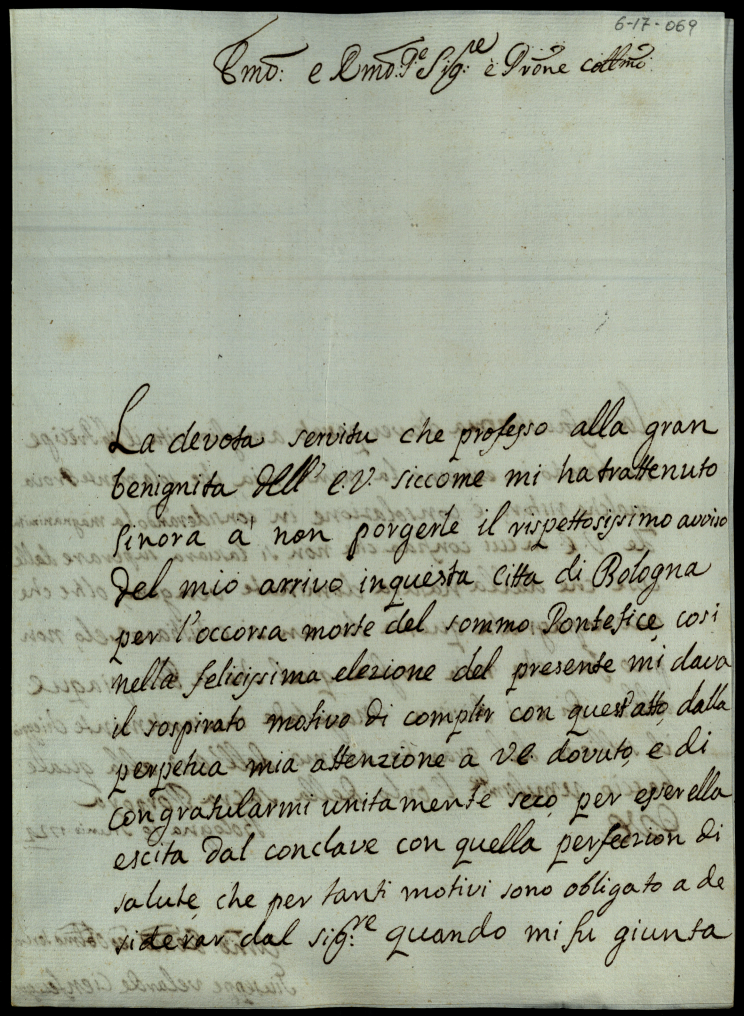 6-17-069
Emo: e Rmo: Pe Sigre e Prone Collmo:
La devota servitu che professo alla gran
benignita dell' e.V. siccome mi ha trattenuto
sinora a' non porgerle il rispettosissimo avviso
del mio arrivo in questa Citta di Bologna
per l'occorsa morte del sommo Pontefice, cosi
nella felicissima elezione del presente mi dava
il sospirato motivo di complir con quest'atto, dalla
perpetua mia attenzione a V.e. dovuto, e di
congratularmi unitamente seco, per esser ella
escita dal conclave con quella perfeczion di
salute, che per tanti motivi sono obligato a de
siderar dal Sigre: quando mi fu giunta